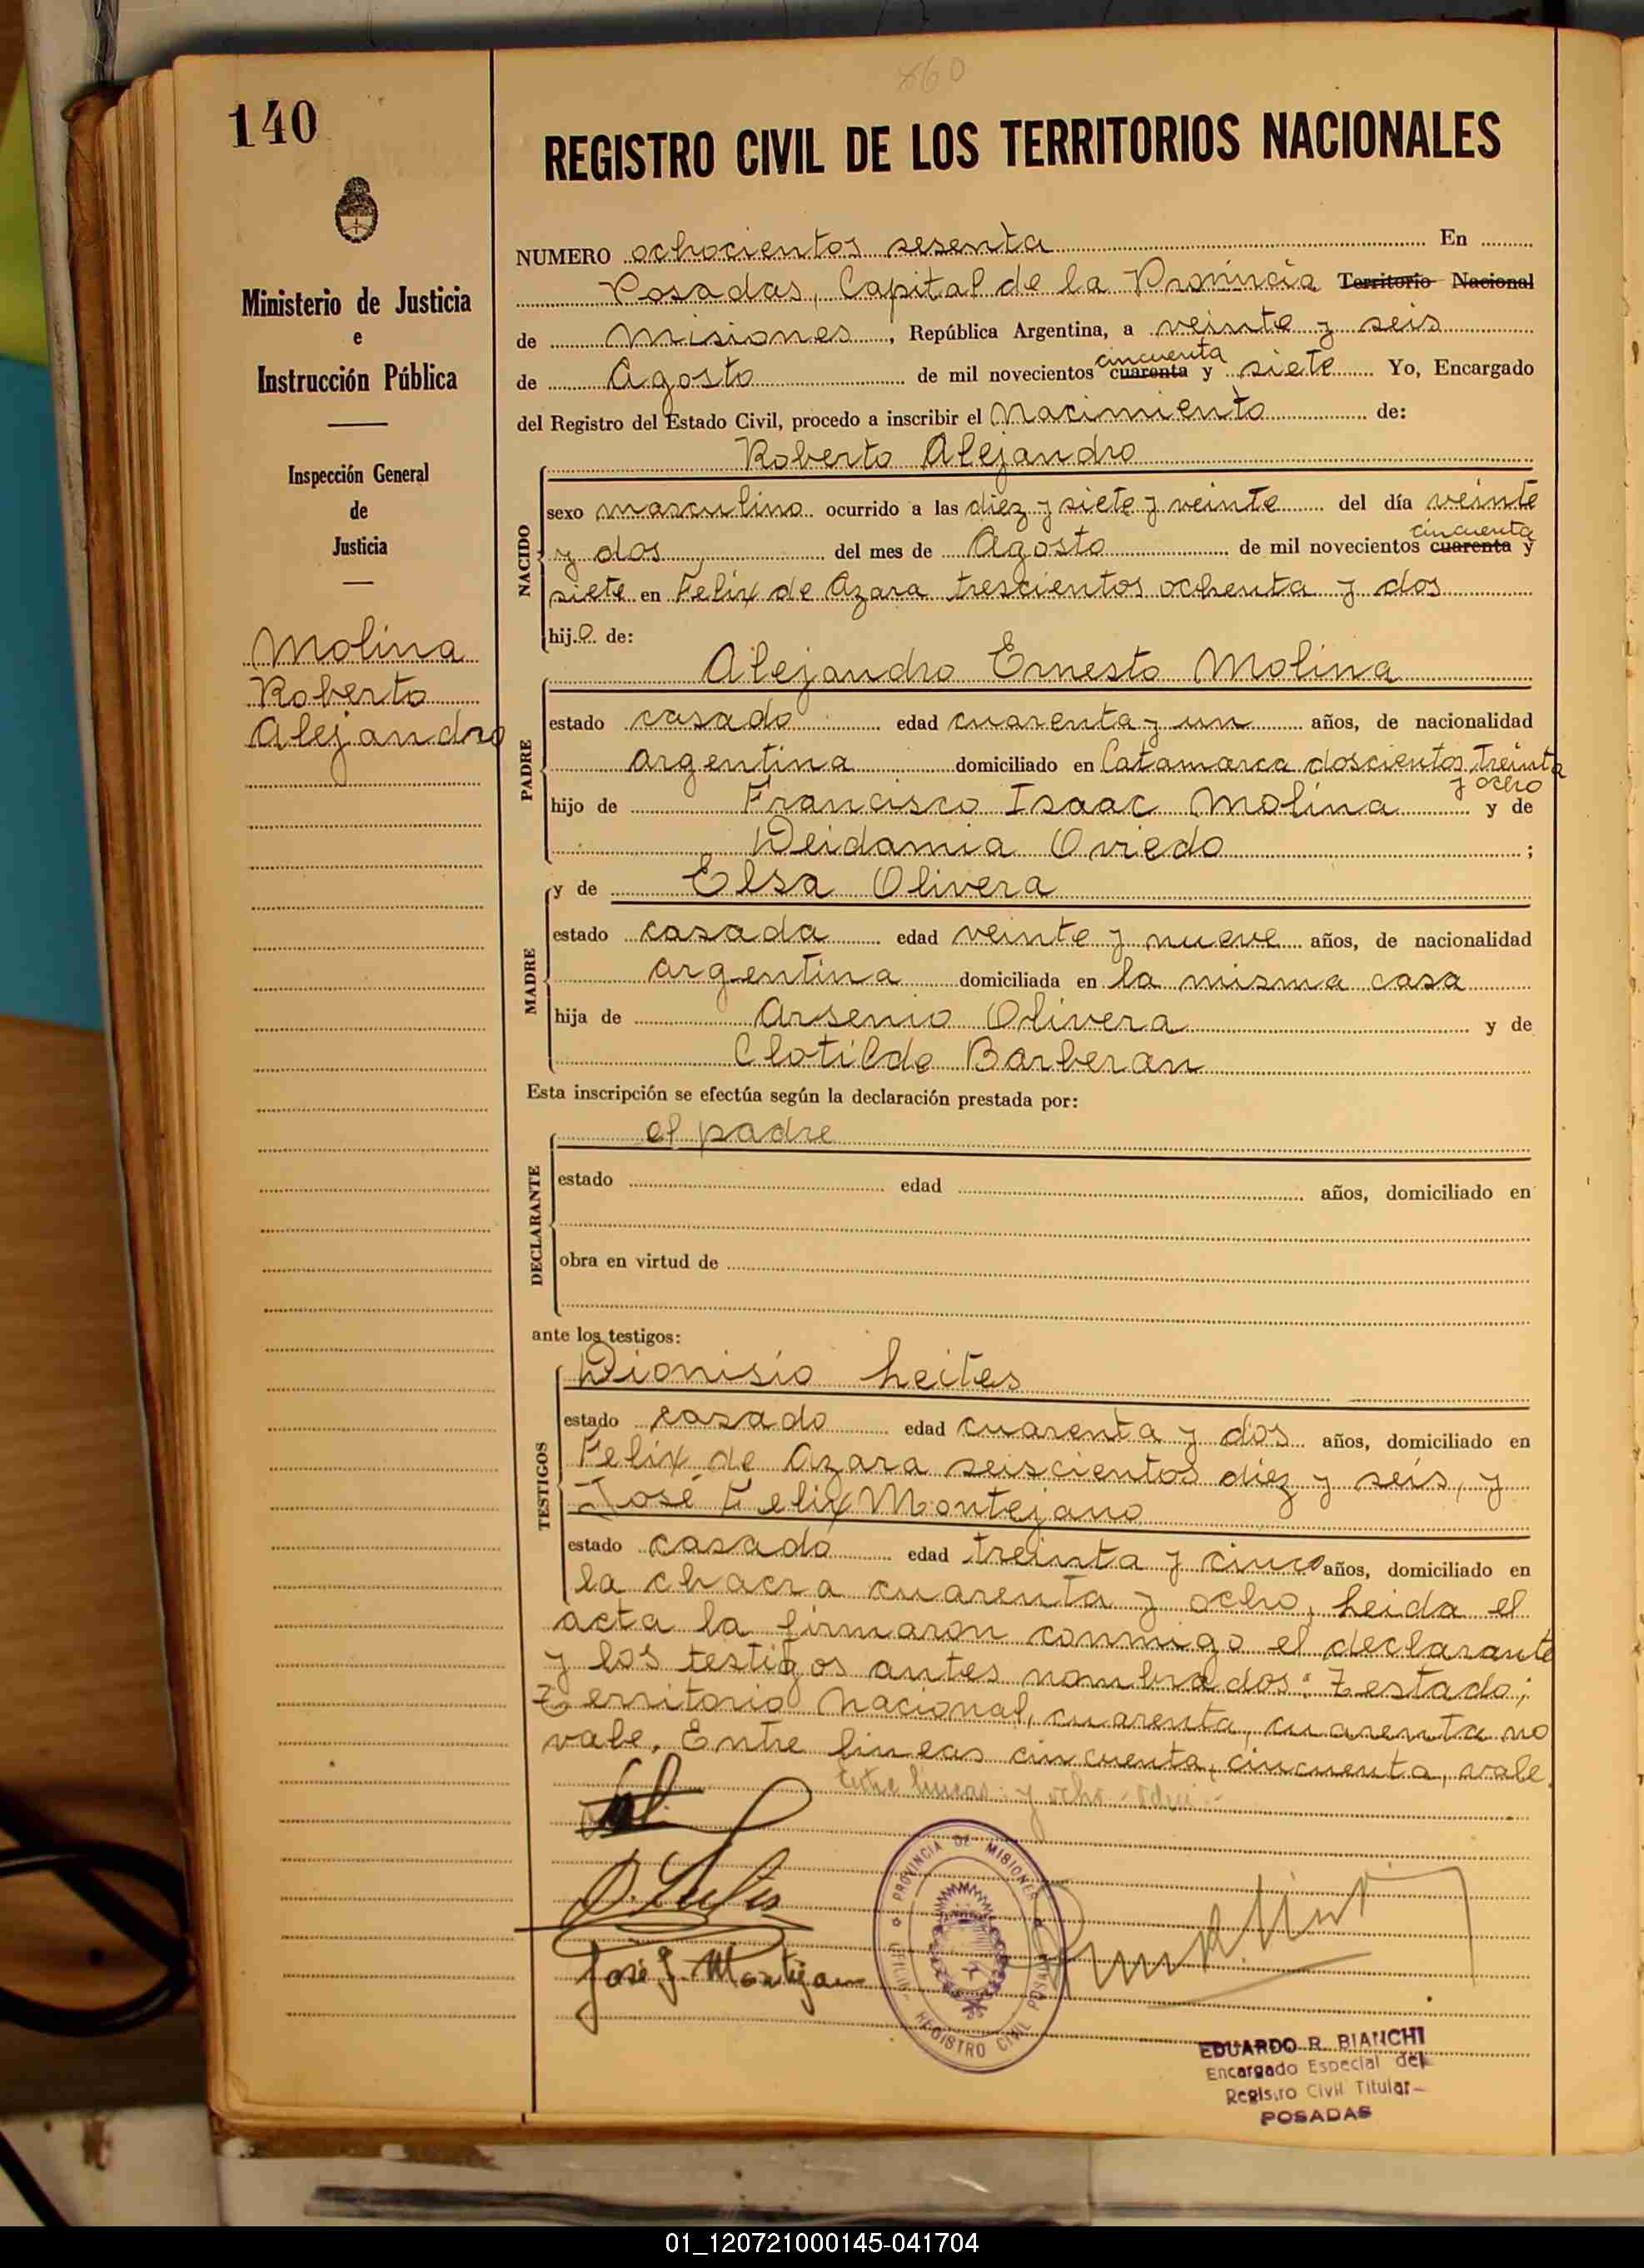 860
140
REGISTRO CIVIL DE LOS TERRITORIOS NACIONALES
Ministerio de Justicia
e
Instrucción Pública
Inspección General
de
Justicia
Molina
Roberto
Alejandro
NUMERO ochocientos sesenta En
Posadas, Capital de la Provincia Territorio Nacional
de Misiones, República Argentina, a veinte y seis
de Agosto de mil novecientos cincuenta cuarenta y siete Yo, Encargado
del Registro del Estado Civil, procedo a inscribir el Nacimiento de:
Roberto Alejandro
NACIDO
sexo masculino ocurrido a las diez y siete y veinte del día veinte
y dos del mes de Agosto de mil novecientos cincuenta cuarenta y
siete en Felix de Azara trescientos ochenta y dos
hijo de:
Alejandro Ernesto Molina
PADRE
estado casado edad cuarenta y un años, de nacionalidad
argentina domiciliado en Catamarca doscientos treinta
y ocho
hijo de Francisco Isaac Molina y de
Deidamia Oviedo ;
y de Elsa Olivera
MADRE
estado casada edad veinte y nueve años, de nacionalidad
argentina domiciliada en la misma casa
hija de Arsenio Olivera y de
Clotilde Barberan
Esta inscripción se efectúa según la declaración prestada por:
el padre
DECLARANTE
estado edad años, domiciliado en
obra en virtud de
ante los testigos:
Dionisio Leites
TESTIGOS
estado casado edad cuarenta y dos años, domiciliado en
Felix de Azara seiscientos diez y seis, y
José Felix Montejano
estado casado edad treinta y cinco años, domiciliado en
la chacra cuarenta y ocho, Leida el
acta la firmaron conmigo el declarante
y los testigos antes nombrados: Testado;
Territorio Nacional, cuarenta, cuarenta no
vale. Entre lineas cincuenta, cincuenta, vale.
Entre lineas: y ocho
D. Leites
José F. Montejano
PROVINCIA DE MISIONES
REGISTRO CIVIL POSADAS
EDUARDO R. BIANCHI
Encargado Especial del
Registro Civil Titular
POSADAS
01_120721000145-041704